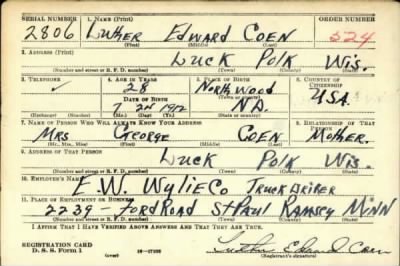 SERIAL NUMBER 1. NAME (Print) ORDER NUMBER
2806 Luther Edward Coen 524
(First) (Middle) (Last)
2. ADDRESS (Print)
Luck Polk Wis.
(Number and street or R. F. D. number) (Town) (County) (State)
3. TELEPHONE 4. AGE IN YEARS 5. PLACE OF BIRTH 6. COUNTRY OF CITIZENSHIP
✓ 28 Northwood USA.
DATE OF BIRTH (Town or county)
7 2nd 1912 N.D.
(Exchange) (Number) (Mo.) (Day) (Yr.) (State or country)
7. NAME OF PERSON WHO WILL ALWAYS KNOW YOUR ADDRESS 8. RELATIONSHIP OF THAT PERSON
Mrs George Coen Mother.
(Mr., Mrs., Miss) (First) (Middle) (Last)
9. ADDRESS OF THAT PERSON
Luck Polk Wis.
(Number and street or R. F. D. number) (Town) (County) (State)
10. EMPLOYER'S NAME
E. W. Wylie Co Truck Driver
11. PLACE OF EMPLOYMENT OR BUSINESS
2239 - Ford Road St Paul Ramsey Minn
(Number and street or R. F. D. number) (Town) (County) (State)
I AFFIRM THAT I HAVE VERIFIED ABOVE ANSWERS AND THAT THEY ARE TRUE.
REGISTRATION CARD
D. S. S. Form 1 (over) Luther Edward Coen
(Registrant's signature)